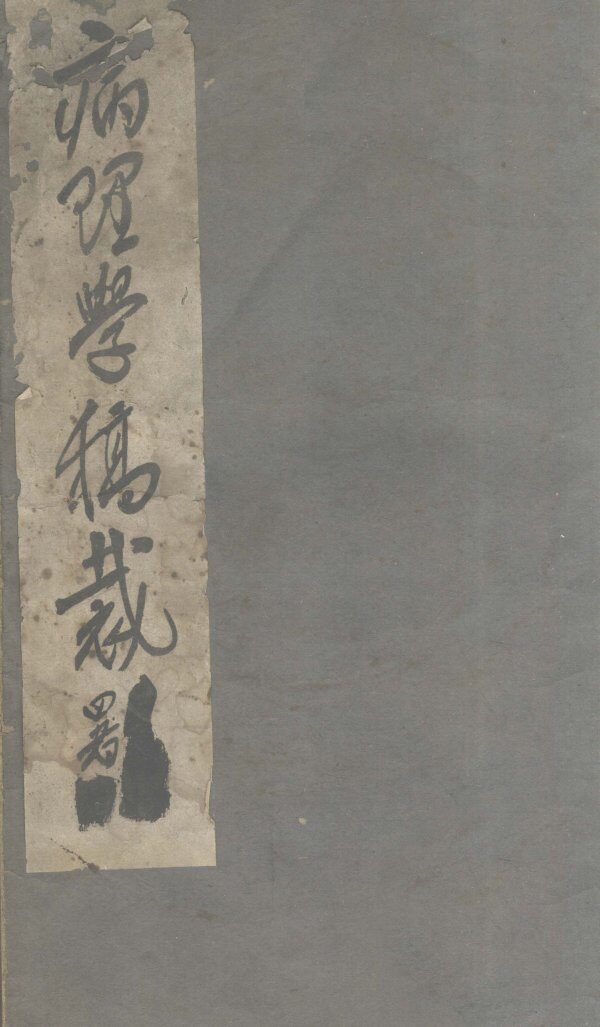 病理學稿裁
署